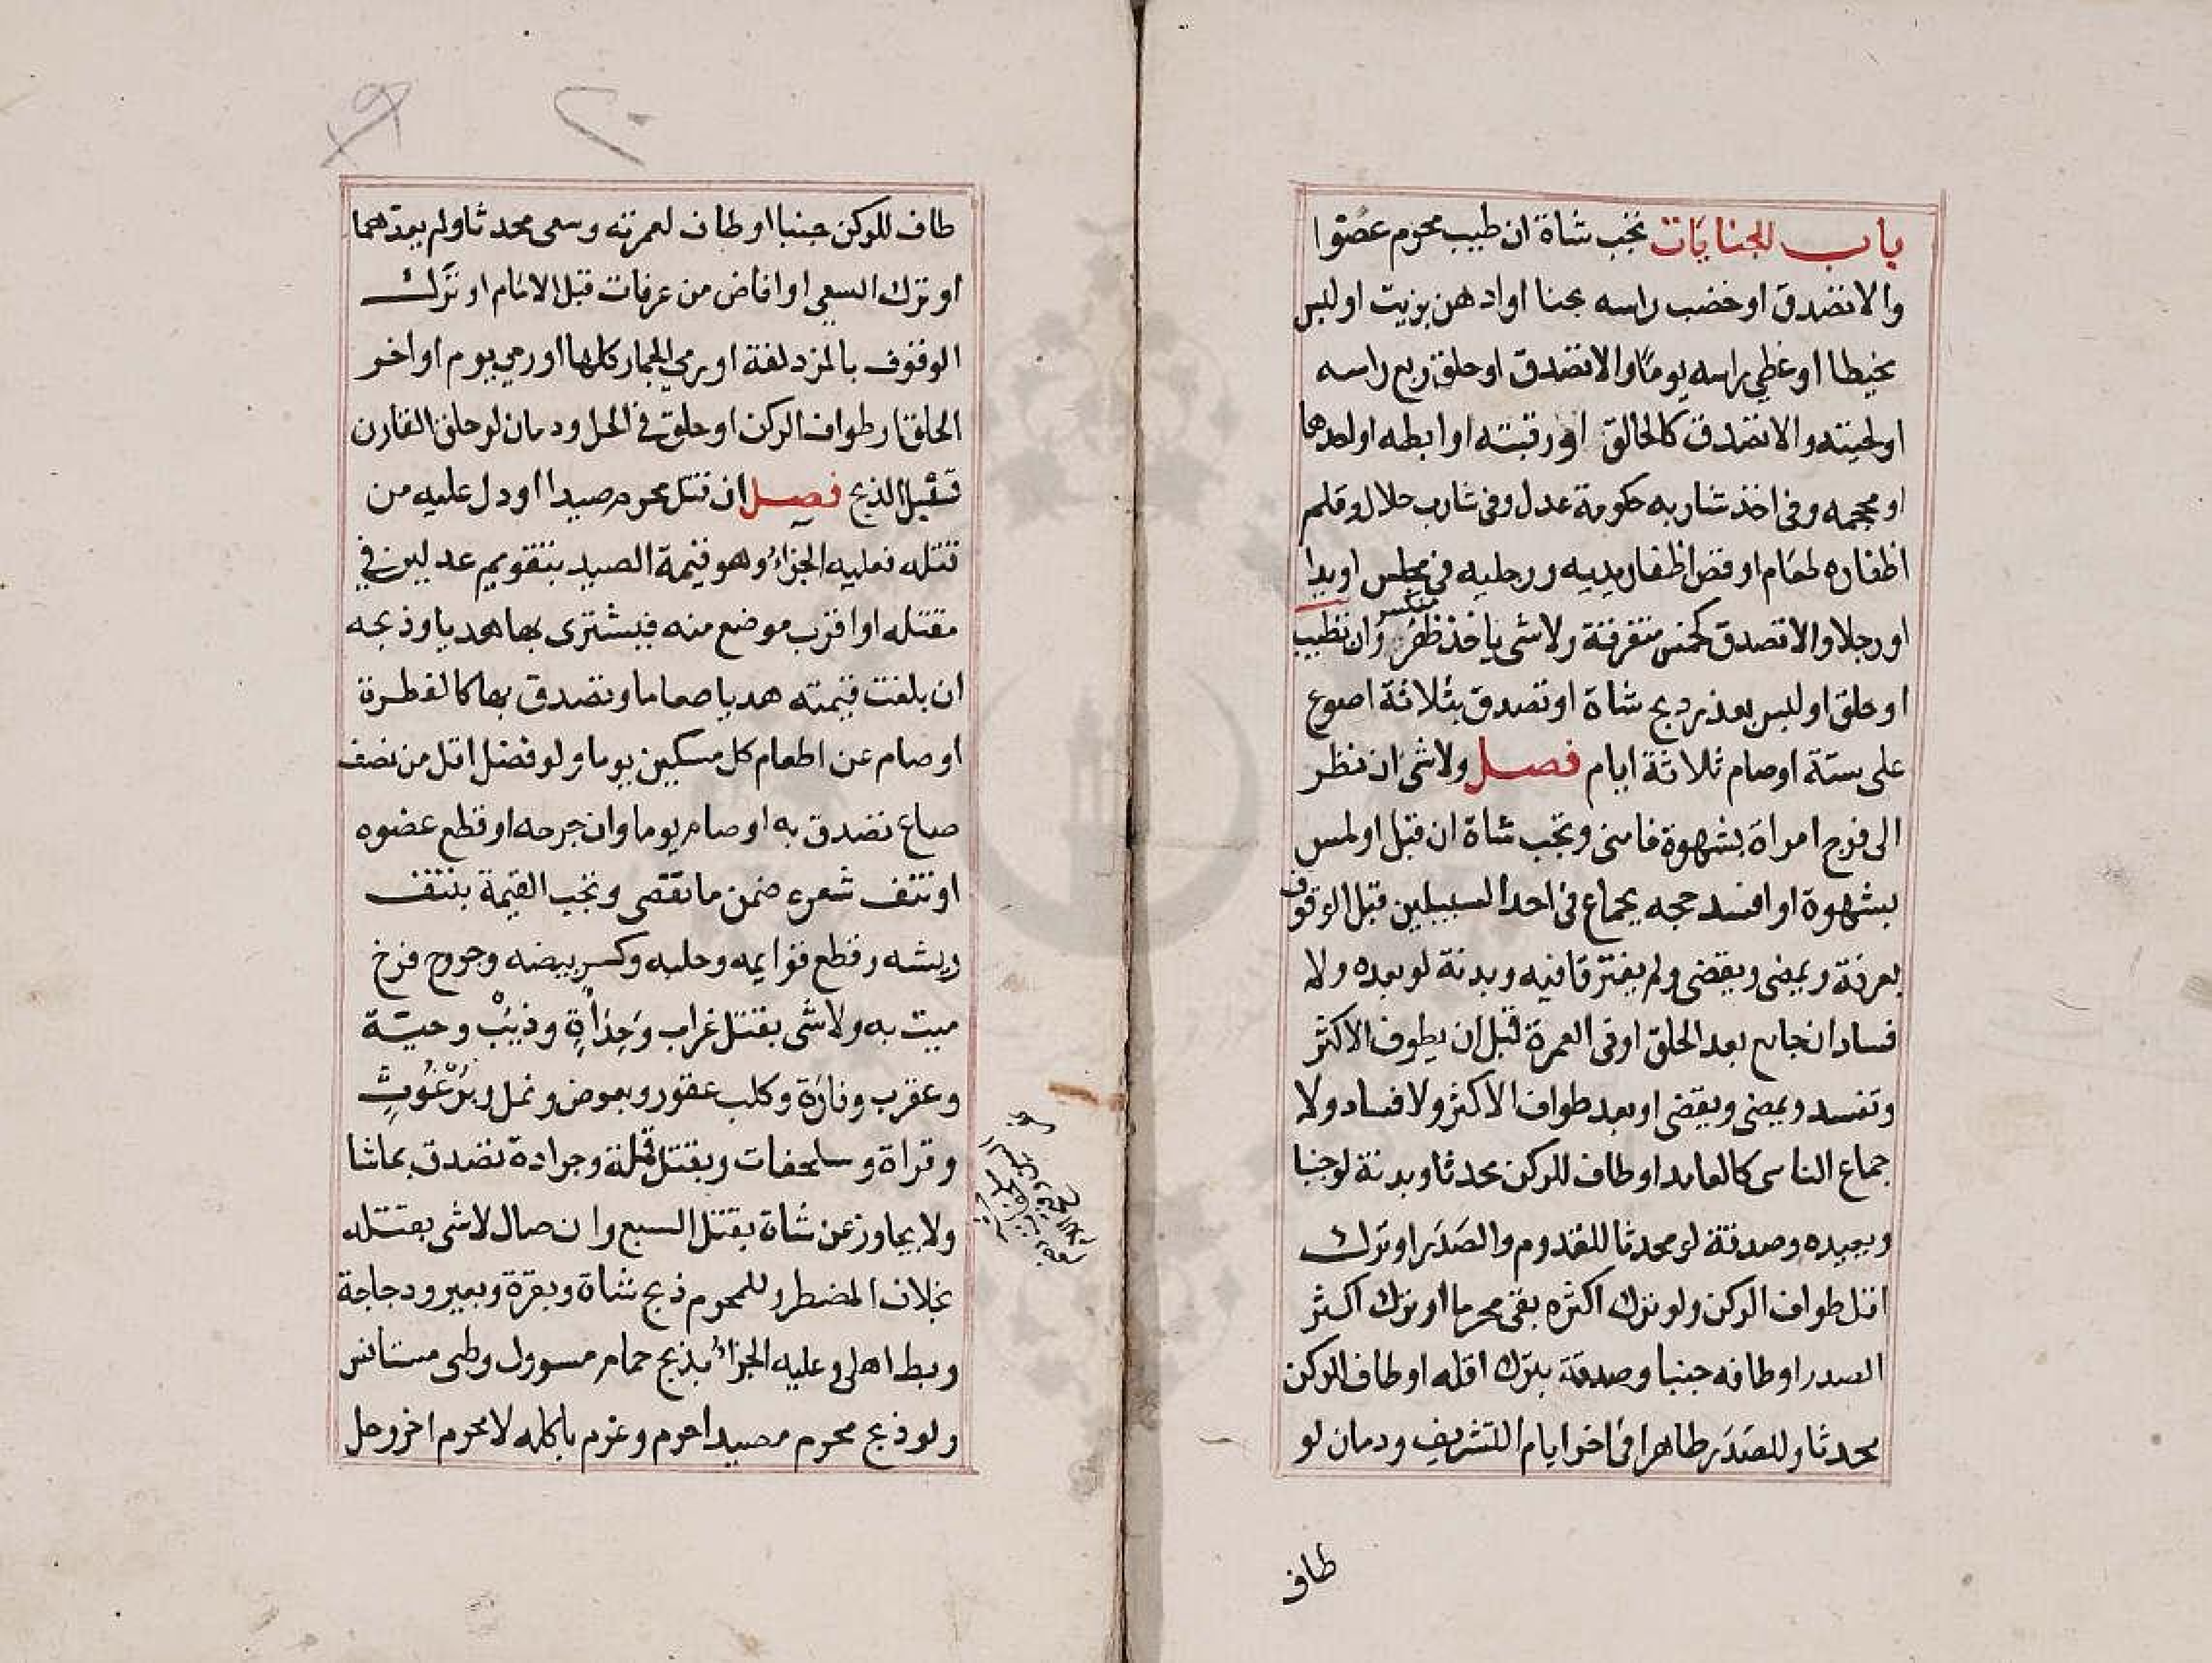 باب الجنايات تجب شاة ان طيب محرم عضوا
والا تصدق او خضب راسه بحنا او ادهن بزيت او لبس
مخيطا او غطي راسه يوما والا تصدق او حلق ربع راسه
او لحيته والا تصدق كالحالق او رقبته او ابطه او احدهما
او محجمه وفى اخذ شاربه حكومة عدل وفى شارب حلال وقلم
اظفاره طعام او قص اظفار يديه ورجليه فى مجلس او يدا
او رجلا والا تصدق كخمس متفرقة ولا شى ياخذ ظفر منكسر وان تطيب
او حلق او لبس بعذر ذبح شاة او تصدق بثلاثة اصوع
على ستة او صام ثلاثة ايام فصل ولا شى ان نظر
الى فرج امراة بشهوة فامنى وتجب شاة ان قبل او لمس
بشهوة او افسد حجه بجماع فى احد السبيلين قبل الوقوف
بعرفة ويمضى ويقضى ولم يفترقا فيه وبدنة لو بعده ولا
فساد ان جامع بعد الحلق او فى العمرة قبل ان يطوف الاكثر
وتفسد ويمضى ويقضى او بعد طواف الاكثر ولا فساد ولا
جماع الناسى كالعامد او طاف للركن محدثا وبدنة لو جنبا
ويعيده وصدقة لو محدثا للقدوم والصدر او ترك
اقل طواف الركن ولو ترك اكثره بقى محرما او ترك اكثر
الصدر او طافه جنبا وصدقة بترك اقله او طاف للركن
محدثا وللصدر طاهرا فى اخر ايام التشريف ودمان لو
طاف
٢٠
طاف للركن جنبا او طاف لعمرته وسعى محدثا ولم يعدهما
او ترك السعي او افاض من عرفات قبل الامام او ترك
الوقوف بالمزدلفة او رمي الجمار كلها او رمي يوم او اخر
الحلق او طواف الركن او حلق في الحل ودمان لو حلق القارن
قبل الذبح فصل ان قتل محرم صيدا او دل عليه من
قتله فعليه الجزاء وهو قيمة الصيد بتقويم عدلين في
مقتله او اقرب موضع منه فيشترى بها هديا وذبحه
ان بلغت قيمته هديا طعاما وتصدق بها كالفطرة
او صام عن اطعام كل مسكين يوما ولو فضل اقل من نصف
صاع تصدق به او صام يوما وان جرحه او قطع عضوه
او نتف شعره ضمن ما نقص وتجب القيمة بنتف
ريشه وقطع قوايمه وحلبه وكسر بيضه وخروج فرخ
ميت به ولا شى بقتل غراب وحدأة وذيب وحية
وعقرب وفارة وكلب عقور وبعوض ونمل وبرغوث
وقراة وسلحفات وبقتل قملة وجرادة تصدق بماشا
ولا يجاوز عن شاة بقتل السبع وان صال لا شى بقتله
بخلاف المضطر وللمحرم ذبح شاة وبقرة وبعير ودجاجة
وبط اهلى وعليه الجزاء بذبح حمام مسرول وظبى مستانس
ولو ذبح محرم صيدا حرم وغرم باكله لا محرم اخر وحل